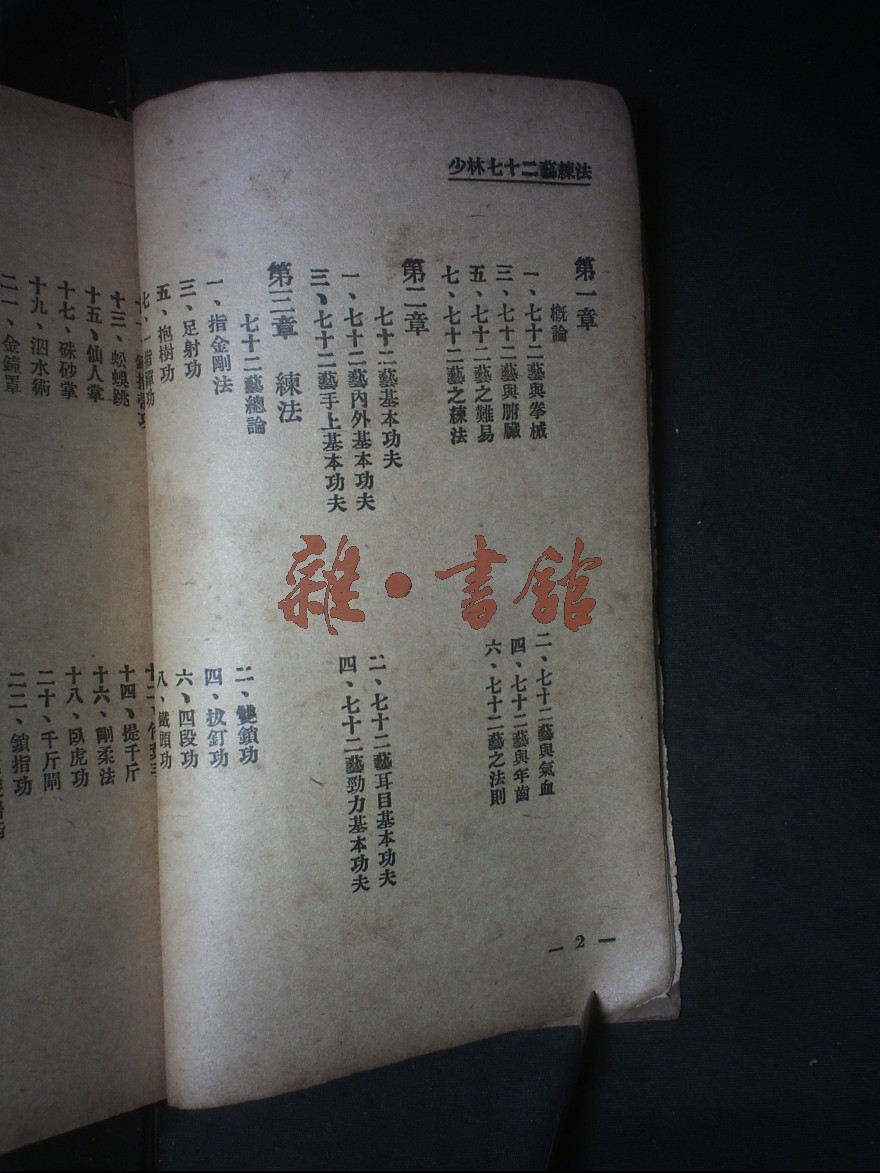 少林七十二藝練法
第一章
概論
一、七十二藝與拳械
二、七十二藝與氣血
三、七十二藝與腑臟
四、七十二藝與年齒
五、七十二藝之難易
六、七十二藝之法則
七、七十二藝之練法
第二章
七十二藝基本功夫
一、七十二藝內外基本功夫
二、七十二藝耳目基本功夫
三、七十二藝手上基本功夫
四、七十二藝勁力基本功夫
第三章 練法
七十二藝總論
一、指金剛法
二、雙鎖功
三、足射功
四、拔釘功
五、抱樹功
六、四段功
七、一指禪功
八、鐵頭功
十三、蜈蚣跳
十四、提千斤
十五、仙人掌
十六、剛柔法
十七、硃砂掌
十八、臥虎功
十九、泅水術
二十、千斤閘
二一、金鐘罩
二二、鎖指功
— 2 —
雜·書館